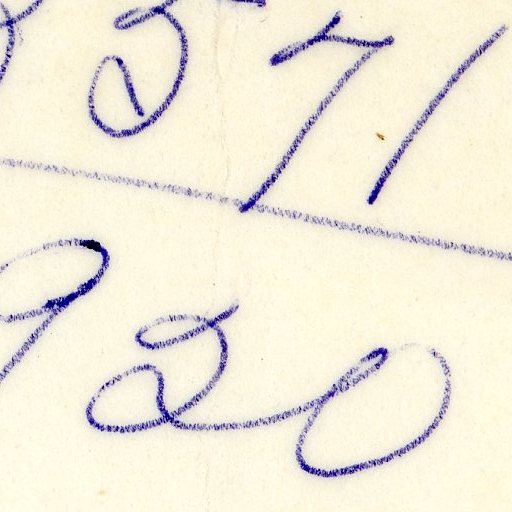 371
920